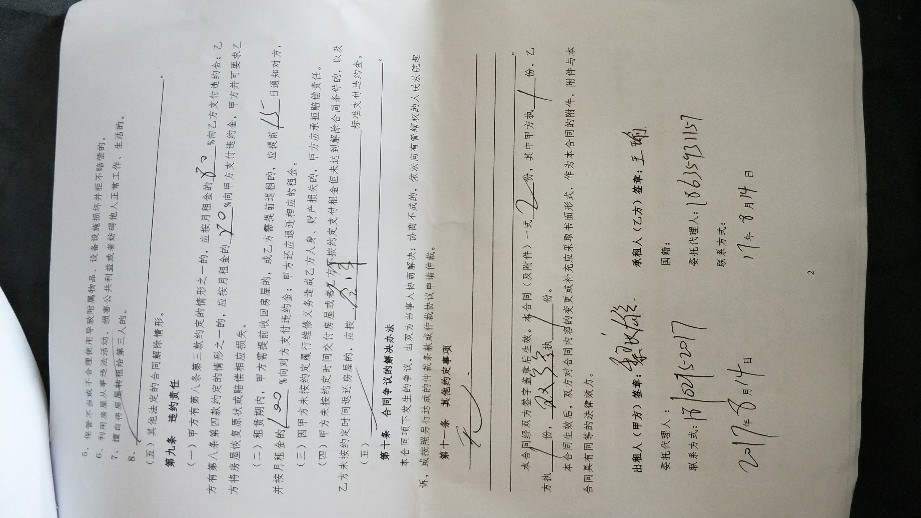 5、保管不当或不合理使用导致附属物品、设备设施损坏并拒不赔偿的。
6、利用房屋从事违法活动、损害公共利益或者妨碍他人正常工作、生活的。
7、擅自将房屋转租给第三人的。
8、
(五)其他法定的合同解除情形。
第九条 违约责任
(一)甲方有第八条第三款约定的情形之一的,应按月租金的 %向乙方支付违约金;乙
方有第八条第四款约定的情形之一的,应按月租金的 %向甲方支付违约金,甲方并可要求乙
方将房屋恢复原状或赔偿相应损失。
(二)租赁期内,甲方需提前收回房屋的,或乙方需提前退租的,应提前15日通知对方,
并按月租金的100%向对方支付违约金;甲方还应退还相应的租金。
(三)因甲方未按约定履行维修义务造成乙方人身、财产损失的,甲方应承担赔偿责任。
(四)甲方未按约定时间交付房屋或者乙方不按约定支付租金但未达到解除合同条件的,以及
乙方未按约定时间返还房屋的,应按 标准支付违约金。
(五)
第十条 合同争议的解决办法
本合同项下发生的争议,由双方当事人协商解决;协商不成的,依法向有管辖权的人民法院起
诉,或按照另行达成的仲裁条款或仲裁协议申请仲裁。
第十一条 其他约定事项
无
本合同经双方签字盖章后生效。本合同(及附件)一式2份,其中甲方执1份,乙
方执1份,双方各执1份。
本合同生效后,双方对合同内容的变更或补充应采取书面形式,作为本合同的附件。附件与本
合同具有同等的法律效力。
出租人(甲方)签章: 承租人(乙方)签章:王
委托代理人: 国籍:
联系方式: 委托代理人:18635931157
联系方式:
2017年8月14日 17年8月14日
2